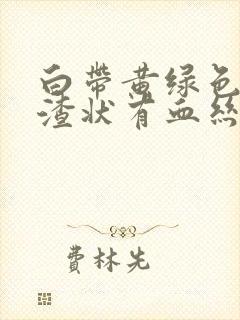 白带黄绿色
渣状有血丝
费林先